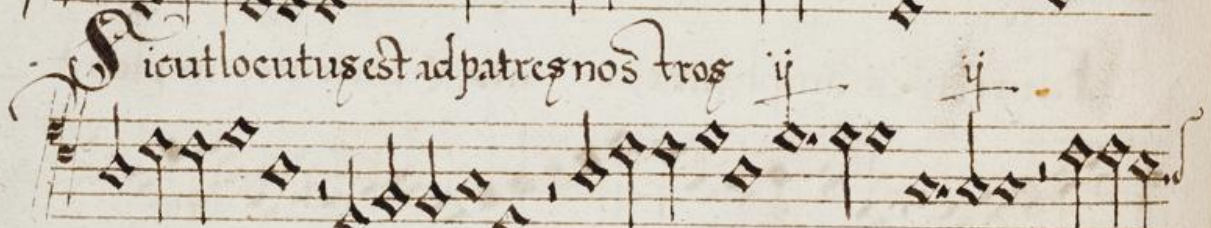 Sicut locutus est ad patres nos tros ij ij